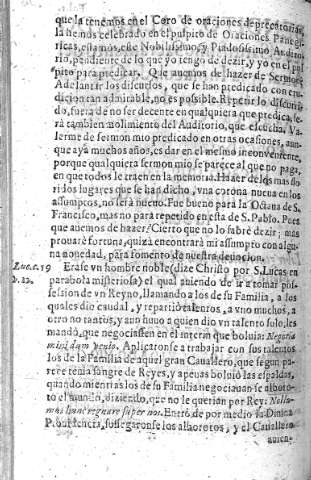 que la tenemos en el Coro de oraciones deprecatorias,
la hemos celebrado en el pulpito de Oraciones Panegi-
ricas, estamos, este Nobilissimo, y Piadosissimo Audito-
rio, pendiente de lo que yo tengo de dezir, y yo en el pul
pito para predicar. Que auemos de hazer de Sermon?
Adelantar los discursos, que se han predicado con eru-
dicion tan admirable, no es possible. Repetir lo discurri-
do, fuera de no ser decente en qualquiera que predica, se-
rà tambien molimiento del Auditorio, que escucha. Va-
lerme de sermon mio predicado en otras ocasiones, aun-
que aya muchos años, es dar en el mesmo inconueniente,
porque qualquiera sermon mio se parece al que no paga,
en que todos le traen en la memoria. Hazer de los mas
ri los lugares que se han dicho, vna corona nueua en los
assumptos, no serà nueuo. Fue bueno para la Octaua de S.
Francisco, mas no para repetido en esta de S. Pablo. Pues
que auemos de hazer? Cierto que no lo sabrè dezir; mas
prouarè fortuna, quizà encontrarà mi assumpto con algu-
na nouedad, para fomento de nuestra deuocion.
Luc. c. 19 Erase vn hombre noble (dize Christo por S. Lucas en
v. 12. parabola misteriosa) el qual auiendo de ir a tomar pos-
session de vn Reyno, llamando a los de su Familia, a los
quales dio caudal, y repartiò talentos, a vno muchos, a
otro no tantos, y vno huuo a quien dio vn talento solo, les
mandò, que negociassen en el interin que boluia: Negotia
mini dum venio. Aplicaronse a trabajar con sus talentos
los de la Familia de aquel gran Cauallero, que segun pa-
rece tenia sangre de Reyes, y apenas boluiò las espaldas,
quando mientras los de su Familia negociauan se alboro-
tò el mundo, diziendo, que no le querian por Rey: Nolu-
mus hunc regnare super nos. Entrò de por medio la Diuina
Prouidencia, sossegaronse los alborotos, y el Cauallero
auien-